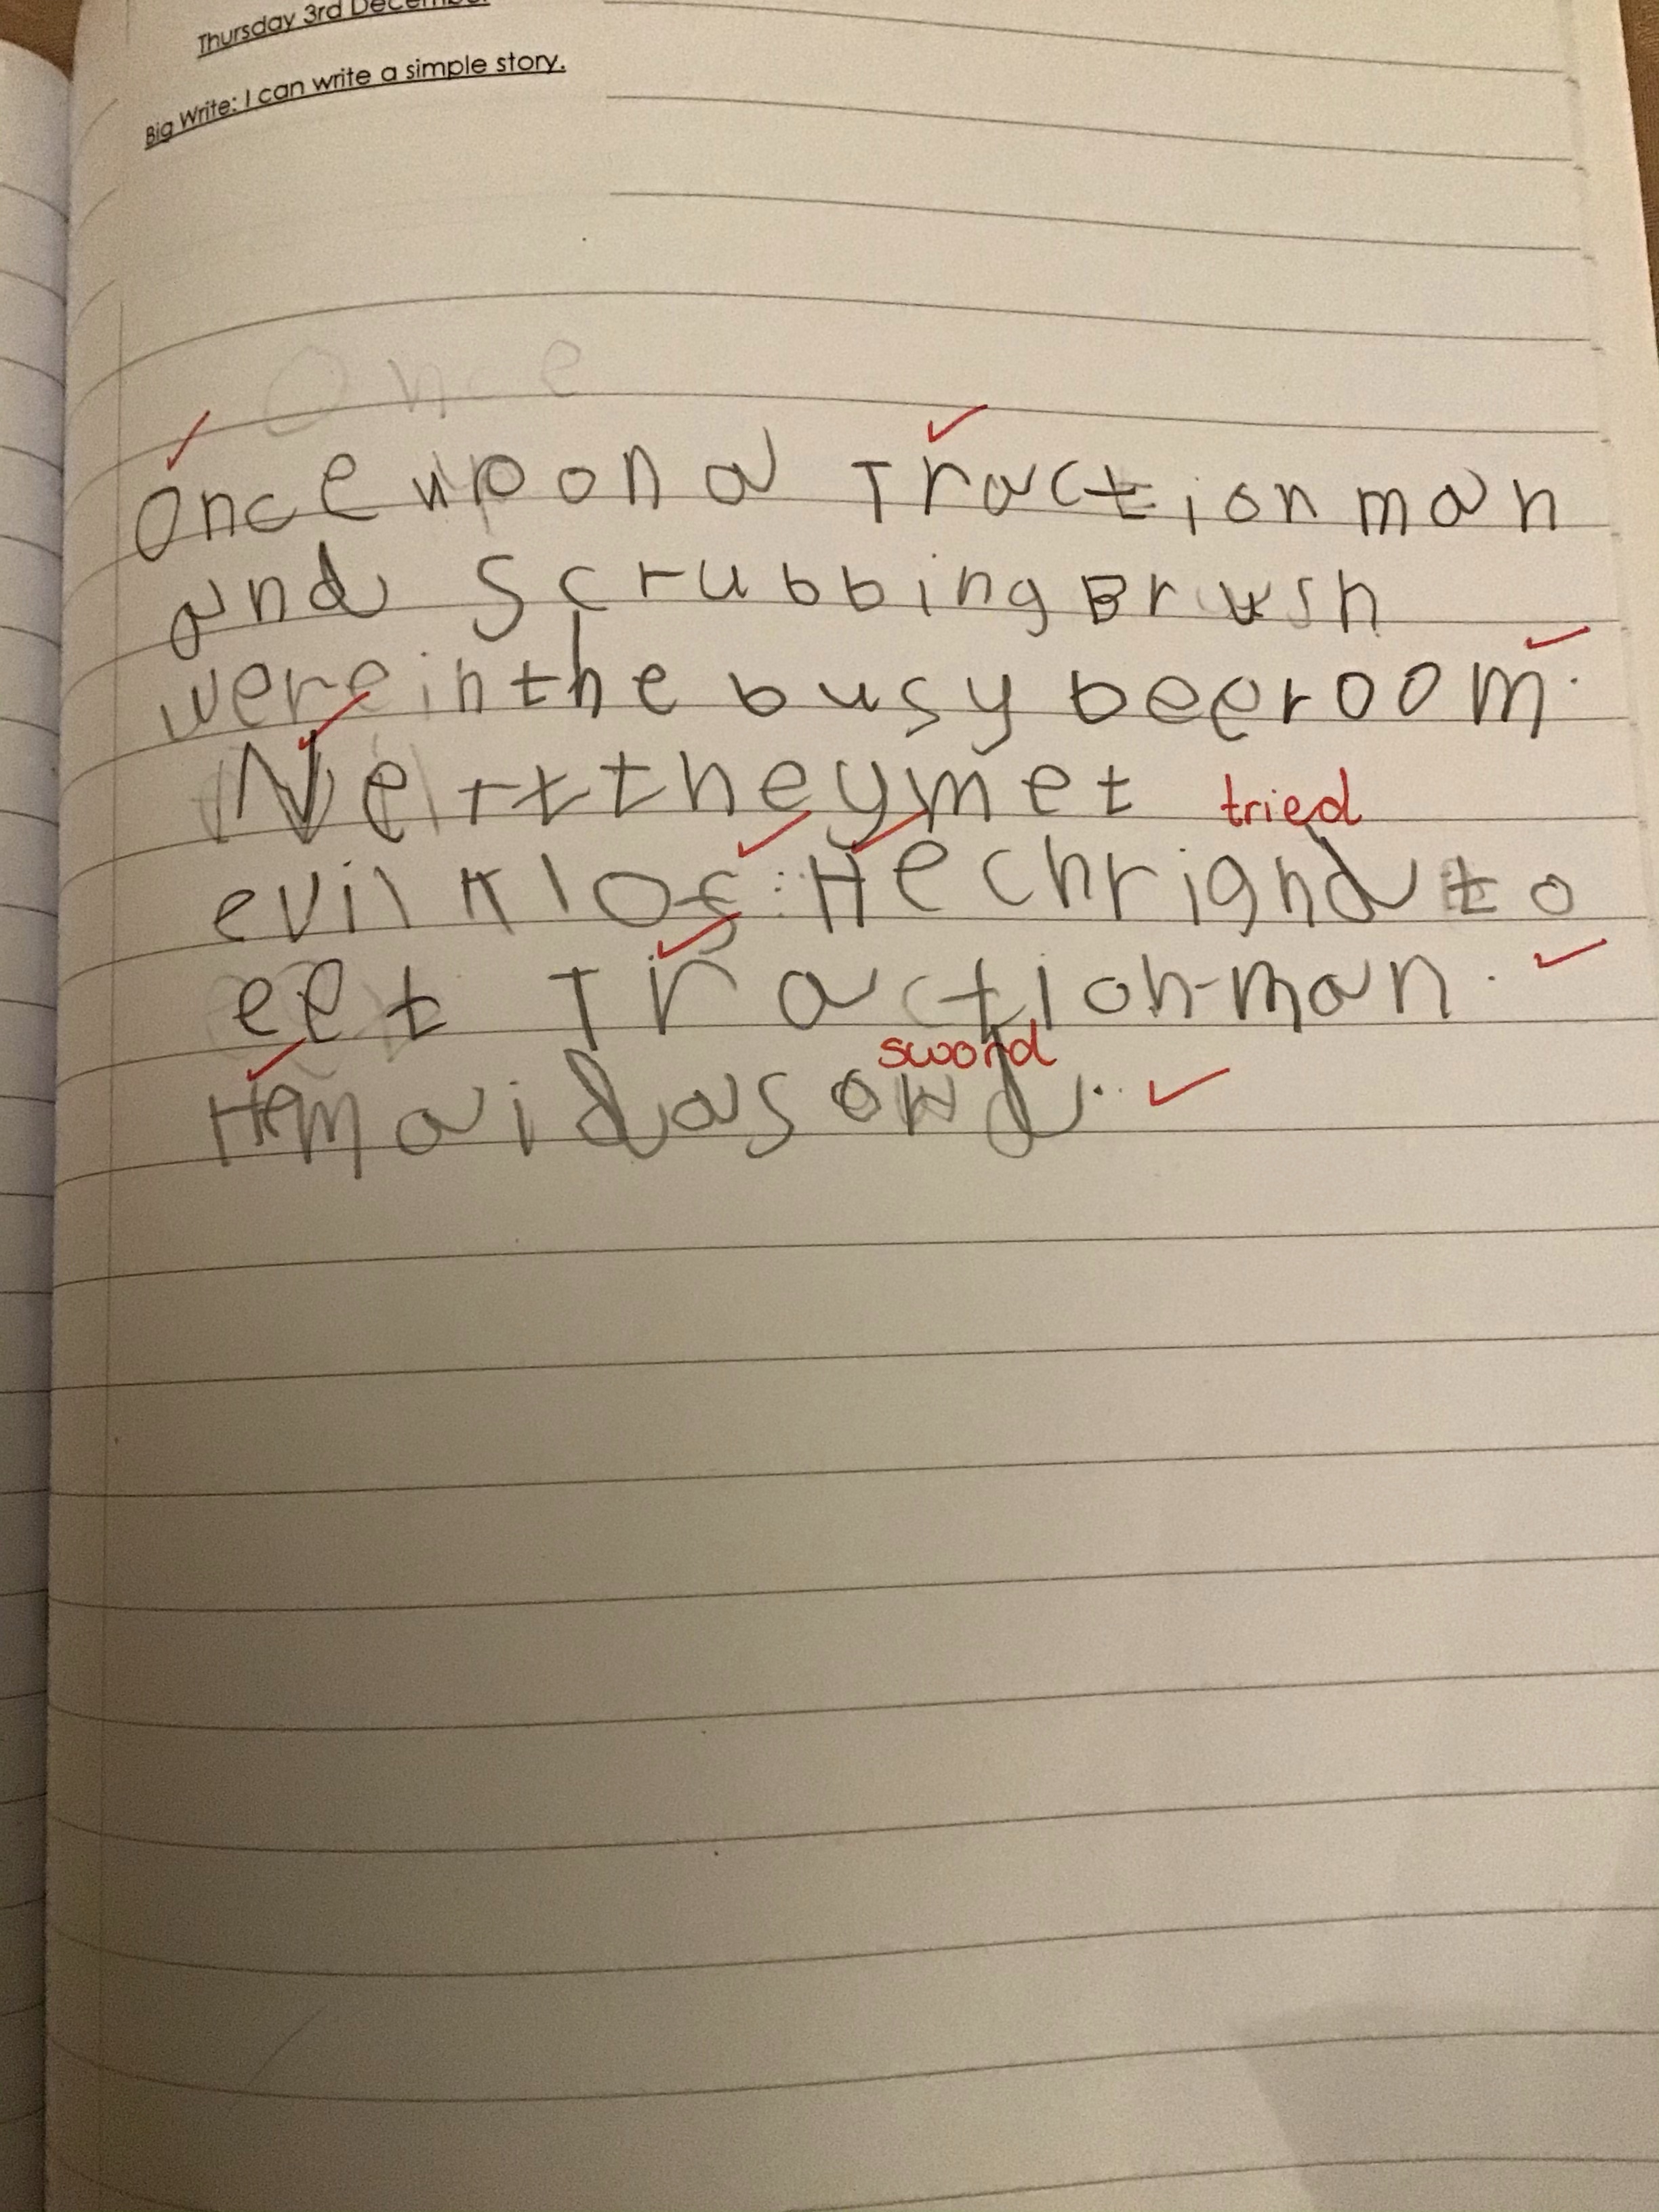 Thursday 3rd December
Big Write: I can write a simple story.
Once
Once upon a Traction man
and Scrubbing Brush
were in the busy bee room.
Next they met
tried
evil klos. He chrignd to
eet Traction-man.
sword
He maid a sowd.